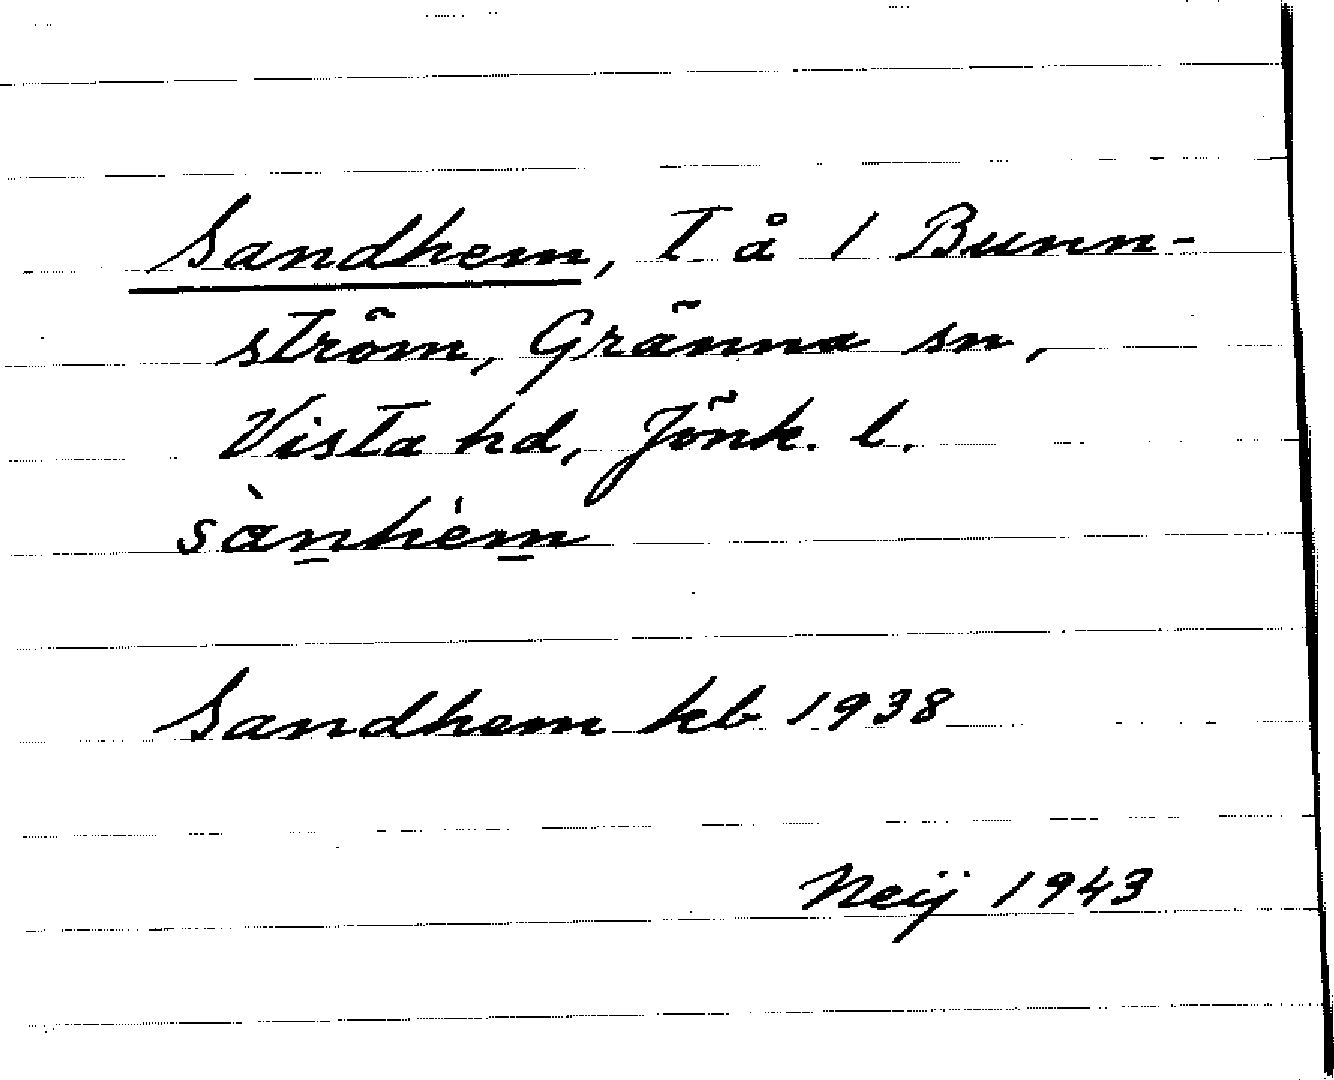 Sandhem, T å 1 Bunn-
ström, Gränna sn,
Vista hd, Jönk. l.
sànhém
Sandhem kb 1938
Neij 1943